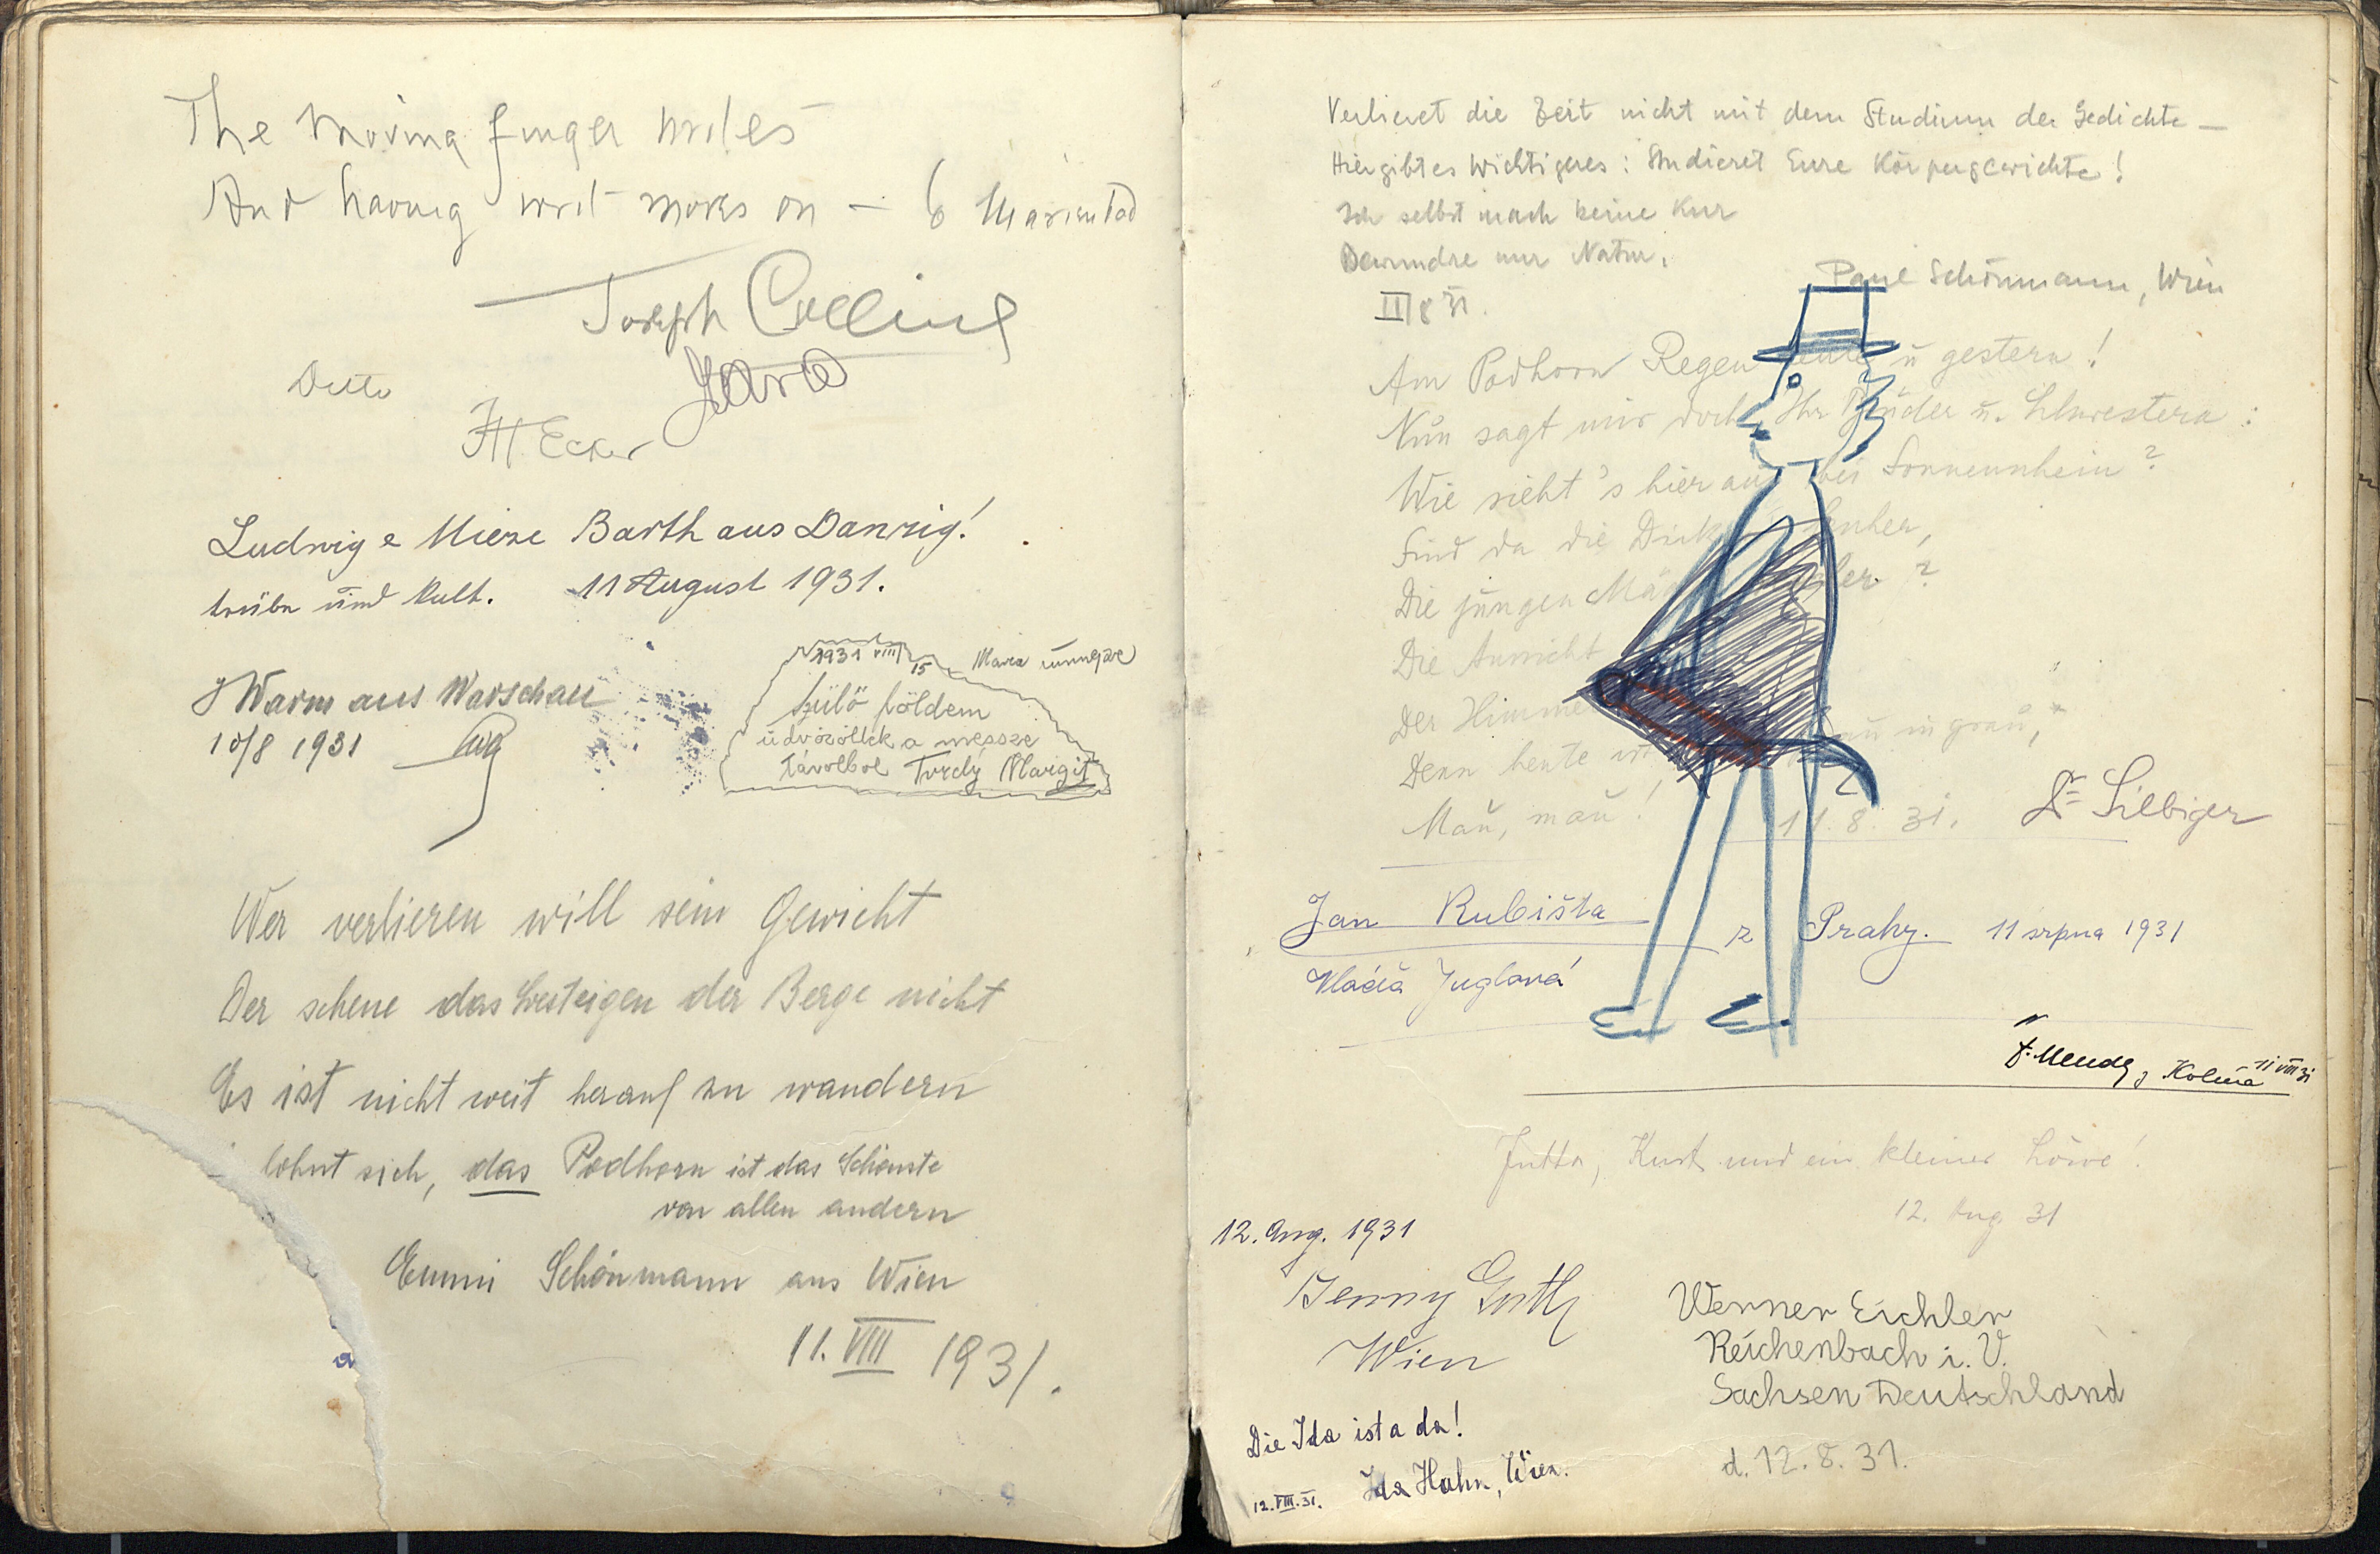 The moving finger writes
And having writ moves on — Marienbad
Joseph Collins
Ditto
Ecker
Ludwig e Mieze Barth aus Danzig!
trübe und kalt. 11 August 1931.
J Warm aus Warschau
10/8 1931
1931 VIII 15 Maria ünnepe
Szülö földem
üdvözöllek a messze
távolbol Turdy Margit
Wer verlieren will sein Gewicht
Der scheue das besteigen der Berge nicht
Es ist nicht weit herauf zu wandern
lohnt sich, das Podhorn ist das Schönste
von allen andern
Emmi Schönmann aus Wien
11. VIII 1931.
Verlieret die Zeit nicht mit dem Studium der Gedichte —
Hier gibt es Wichtigeres: Studieret Eure Körpergewichte!
Ich selbst mach keine Kur
Bewundre nur Natur.
Paul Schönmann, Wien
III 8 31.
Am Podhorn Regen heute u gestern!
Nun sagt mir doch Ihr Brüder u. Schwestern:
Wie sieht's hier aus bei Sonnenschein?
Sind da die Dick
Die jungen
Die Aussicht
Der Himmel in grau,
Denn heute ist
Mau, mau! 11.8.31. Dr Silbiger
Jan Kubišta z Prahy. 11 srpna 1931
Juglová
11 VIII 31
Jutta, Kurt und ein kleiner Löwe!
12. Aug 31
12. Aug. 1931
Jenny
Wien
Werner Eichler
Reichenbach i. V.
Sachsen Deutschland
d. 12.8.31.
Die Ida ist a da!
12.VIII.31. Ida Hahn, Wien.